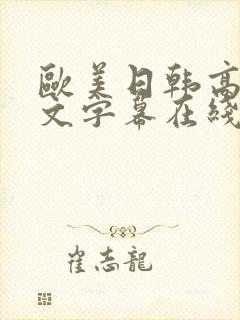 歐美日韩高
文字幕在綫
崔志龍